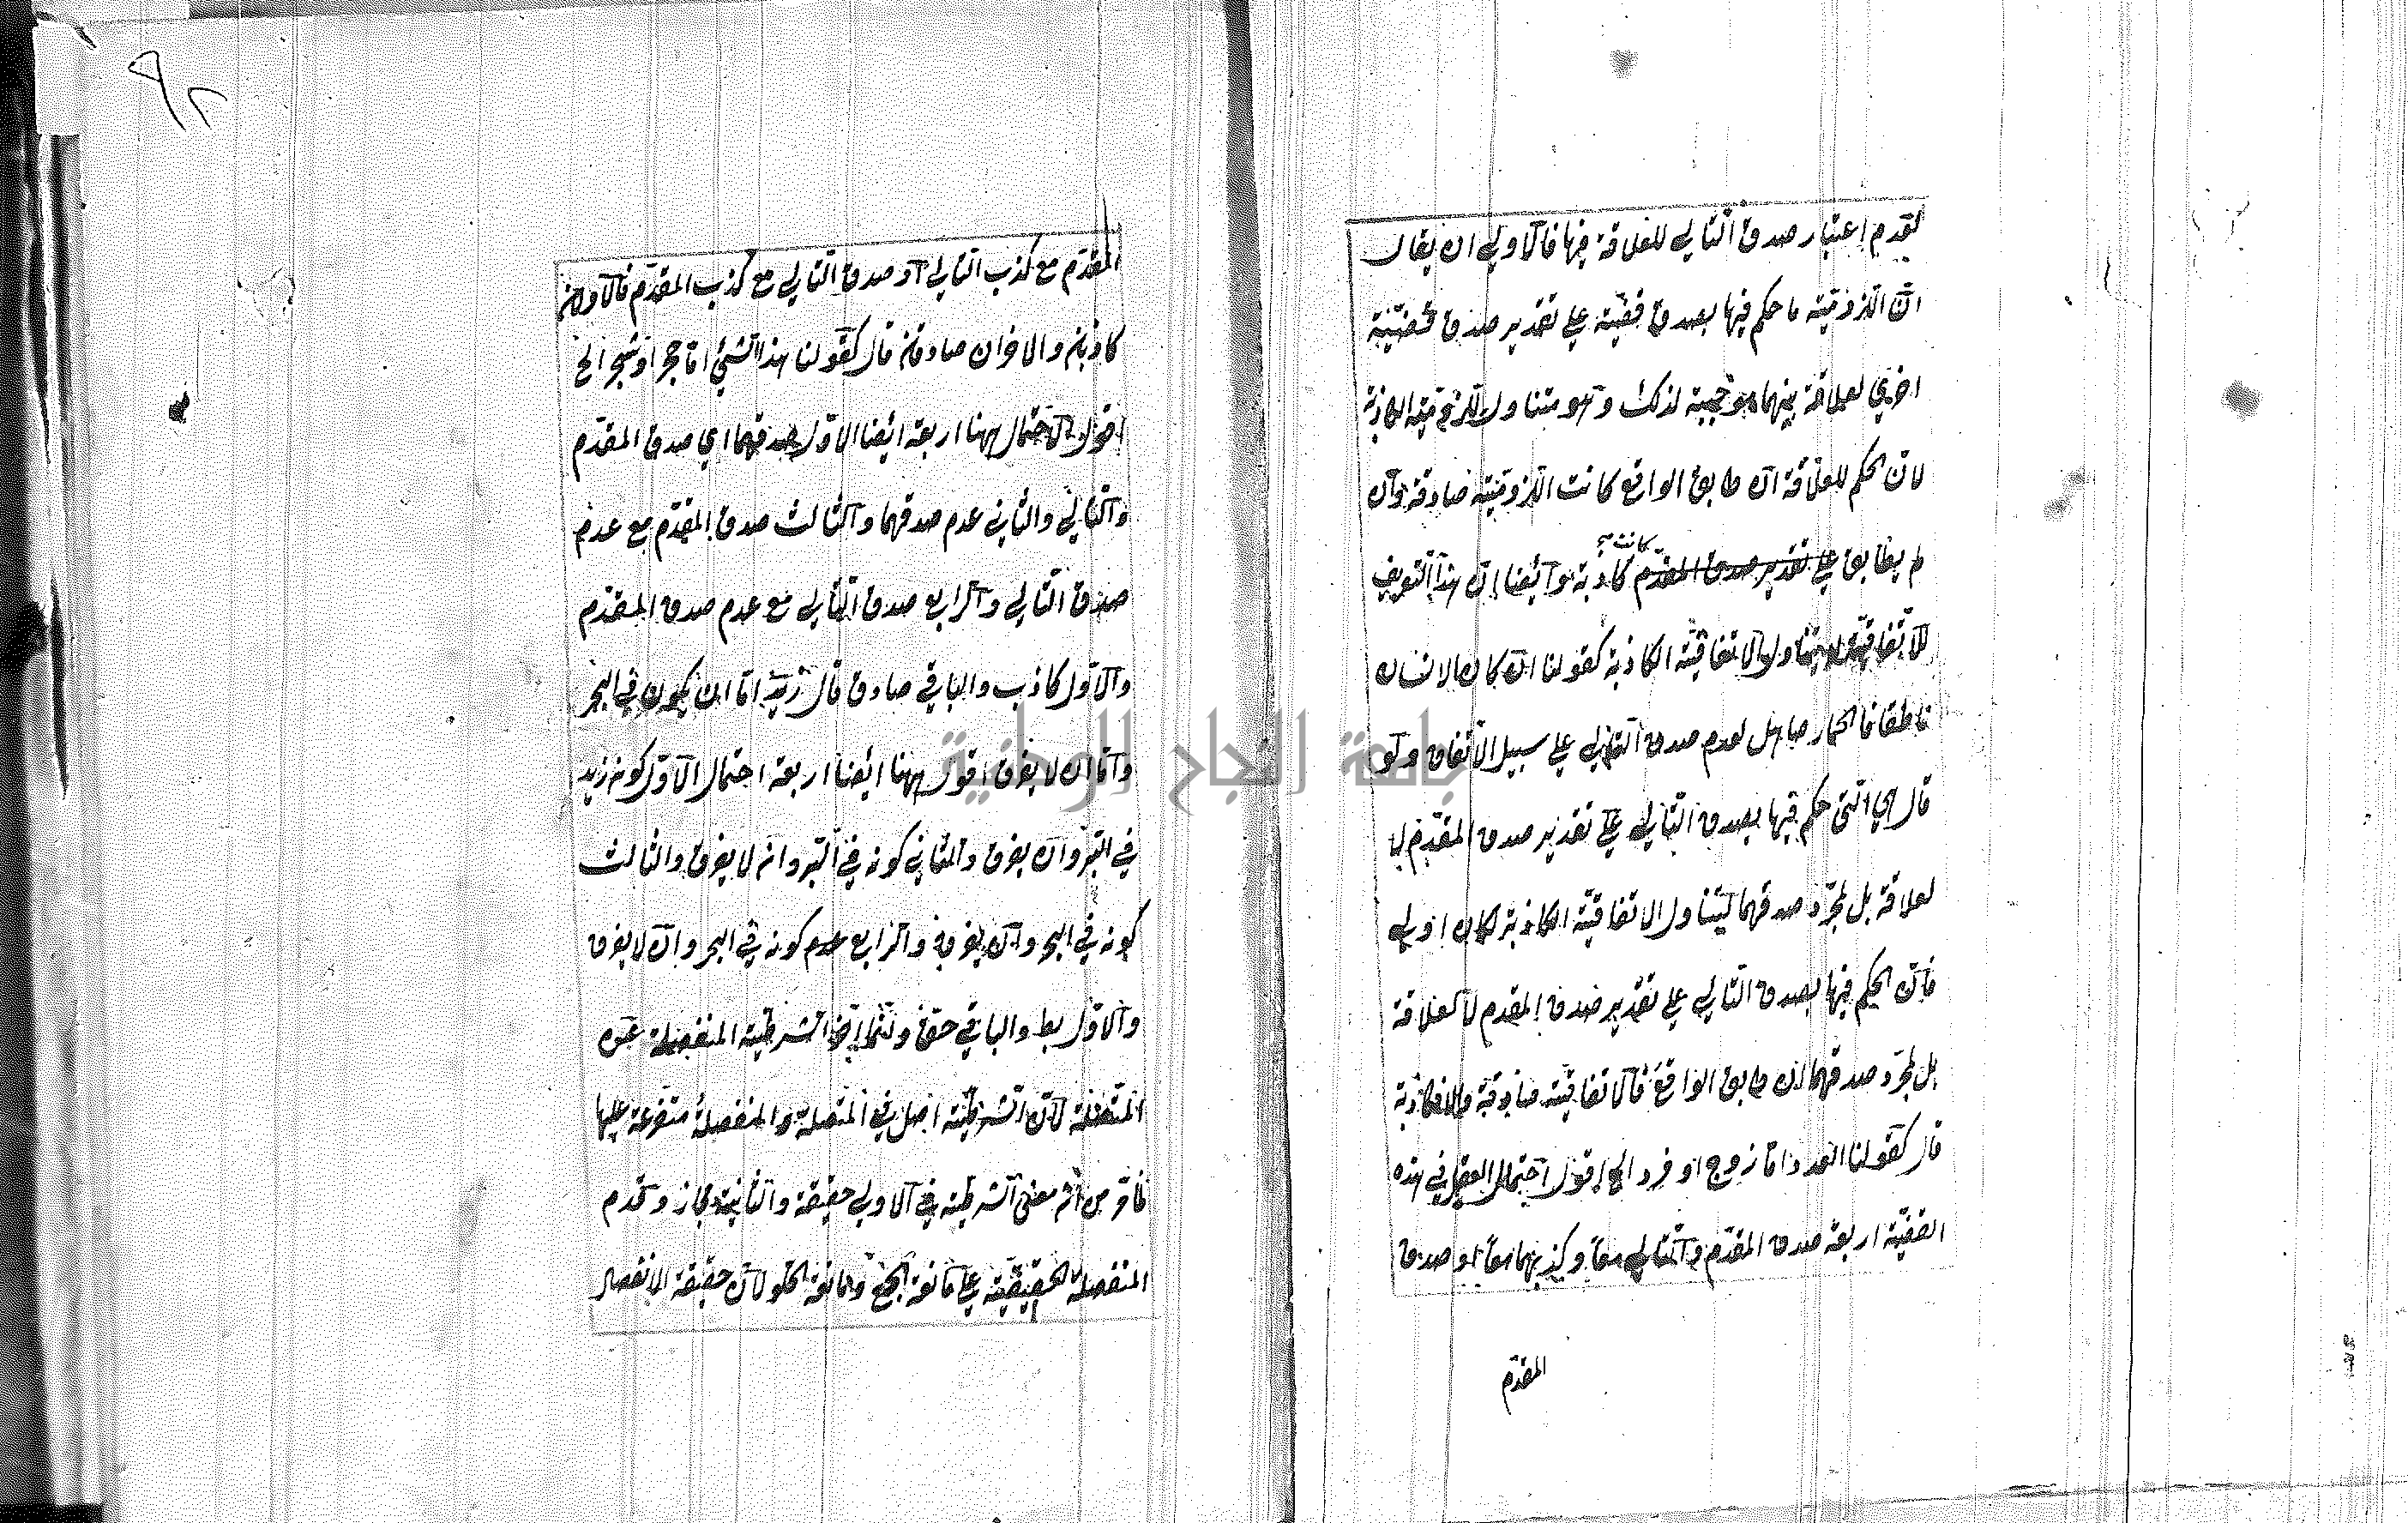 لعدم اعتبار صدق التالي للعلاقة فيها فالاولي ان يقال
ان اللزومية ما حكم فيها بصدق قضية علي تقدير صدق قضية
اخري لعلاقة بينهما موجبة لذلك وهو متناول للزومية الكاذبة
لان الحكم للعلاقة ان طابق الواقع كانت اللزومية صادقة وان
لم يطابق علي تقدير صدق المقدم كانت كاذبة وايضا ان هذا التعريف
للاتفاقية لا يتناول الاتفاقية الكاذبة كقولنا ان كان الانسان
ناطقا فالحمار صاهل لعدم صدق التالي علي سبيل الاتفاق ولو
قال هي التي حكم فيها بصدق التالي علي تقدير صدق المقدم لا
لعلاقة بل لمجرد صدقهما ليتناول الاتفاقية الكاذبة لكان اولي
فان الحكم فيها بصدق التالي علي تقدير صدق المقدم لا لعلاقة
بل لمجرد صدقهما ان طابق الواقع فالاتفاقية صادقة والا فكاذبة
قال كقولنا العدد اما زوج او فرد الخ اقول احتمال العقل في هذه
القضية اربعة صدق المقدم والتالي معا وكذبهما معا او صدق
المقدم
المقدم مع كذب التالي او صدق التالي مع كذب المقدم فالاولان
كاذبان والاخران صادقان قال كقولنا هذا الشيئ اما حجر او شجر الخ
اقول الاحتمال ههنا اربعة ايضا الاول صدقهما اي صدق المقدم
والتالي والثاني عدم صدقهما والثالث صدق المقدم مع عدم
صدق التالي والرابع صدق التالي مع عدم صدق المقدم
والاول كاذب والباقي صادق قال زيد اما ان يكون في البحر
واما ان لا يغرق اقول ههنا ايضا اربعة احتمال الاول كونه زيد
في البر وان يغرق والثاني كونه في البر وانه لا يغرق والثالث
كونه في البحر وان يغرق والرابع عدم كونه في البحر وان لا يغرق
والاول بط والباقي حق وانما اخر الشرطية المنفصلة عن
المتصلة لان الشرطية اصل في المتصلة والمنفصلة متفرعة عليها
لما مر من ان معني الشرطية في الاولي حقيقة والثانية مجاز وقدم
المنفصلة الحقيقية علي مانعة الجمع ومانعة الخلو لان حقيقة الانفصال
جامعة النجاح الوطنية